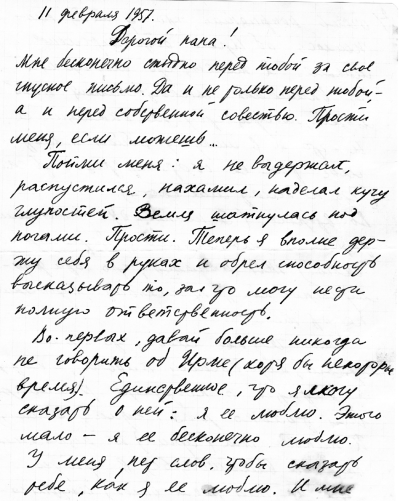 11 февраля 1957.
Дорогой папа!
Мне бесконечно стыдно перед тобой за свое
гнусное письмо. Да и не только перед тобой,-
а и перед собственной совестью. Прости
меня, если можешь...
Пойми меня: я не выдержал,
распустился, нахамил, наделал кучу
глупостей. Земля шатнулась под
ногами. Прости. Теперь я вполне дер-
жу себя в руках и обрел способность
высказывать то, за что могу нести
полную ответственность.
Во-первых, давай больше никогда
не говорить об Ирме (хотя бы некоторое
время). Единственное, что я могу
сказать о ней: я ее люблю. Этого
мало – я ее бесконечно люблю.
У меня нет слов, чтобы сказать
тебе, как я ее люблю. И мне